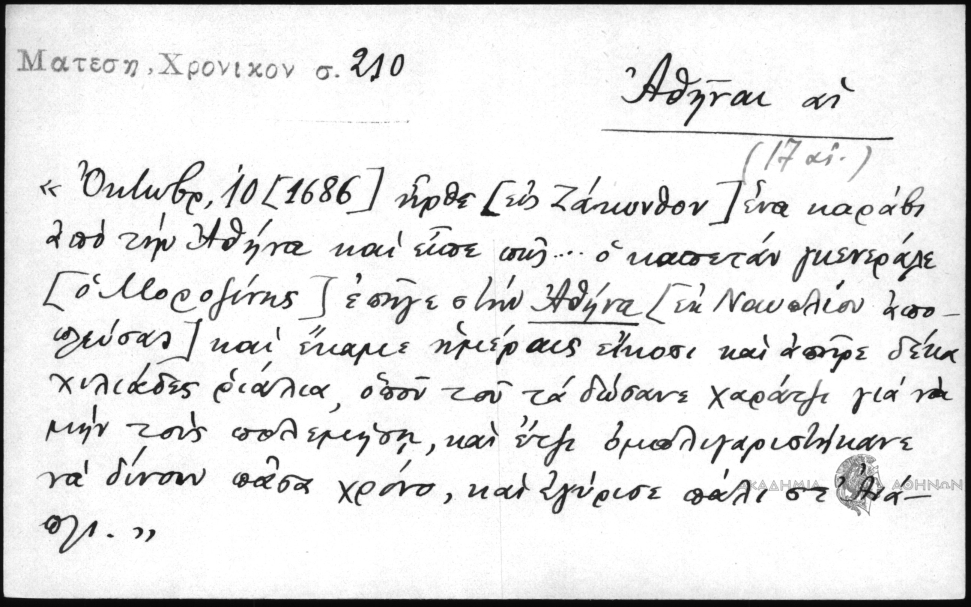 Ματεση, Χρονικον σ. 210
Ἀθῆναι αἱ
(17 αἰ.)
« Ὀκτωβρ, 10 [1686] ἦρθε [εἰς Ζάκυνθον] ἕνα καράβι
ἀπὸ τὴν Ἀθήνα καὶ εἶπε πῶς... ὁ καπετὰν γκενεράλε
[ὁ Μοροζίνης] ἐπῆγε στὴν Ἀθήνα [ἐκ Ναυπλίου ἀπο-
πλεύσας] καὶ ἔκαμε ἡμέραις εἴκοσι καὶ ἀπῆρε δέκα
χιλιάδες ῥιάλια, ὁποῦ τοῦ τὰ δώσανε χαράτζι γιὰ νὰ
μὴν τοὺς πολεμήσῃ, καὶ ἔτζι ὀμπλιγαριστήκανε
νὰ δίνουν πᾶσα χρόνο, καὶ ἐγύρισε πάλι στ' Ἀνά-
πλι. »
ΑΚΑΔΗΜΙΑ ΑΘΗΝΩΝ